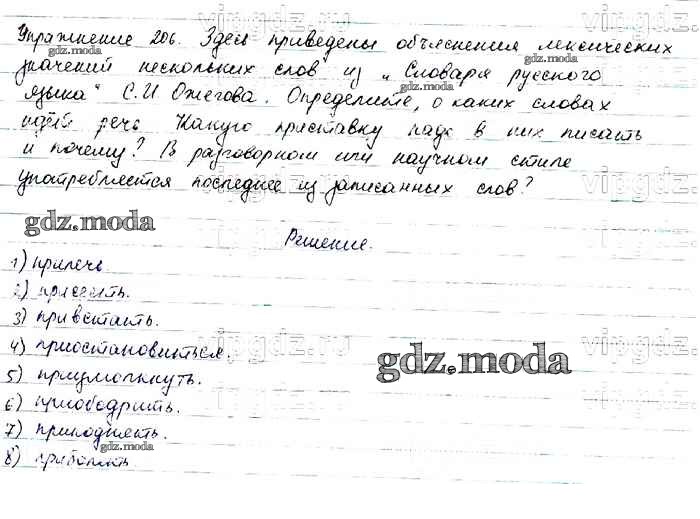 Упражнение 206. Здесь приведены объяснения лексических
значений нескольких слов из „Словаря русского
языка“ С.И Ожегова. Определите, о каких словах
идёт речь Какую приставку надо в них писать
и почему? В разговорном или научном стиле
употребляется последнее из записанных слов?
Решение.
1) прилечь
2) присесть.
3) привстать.
4) приостановиться.
5) приумолкнуть.
6) приободрить.
7) приподнять.
8)
gdz.moda
gdz.moda
gdz.moda
gdz.moda
gdz.moda
gdz.moda
gdz.moda
gdz.moda
vipgdz.ru
vipgdz.ru
vipgdz.ru